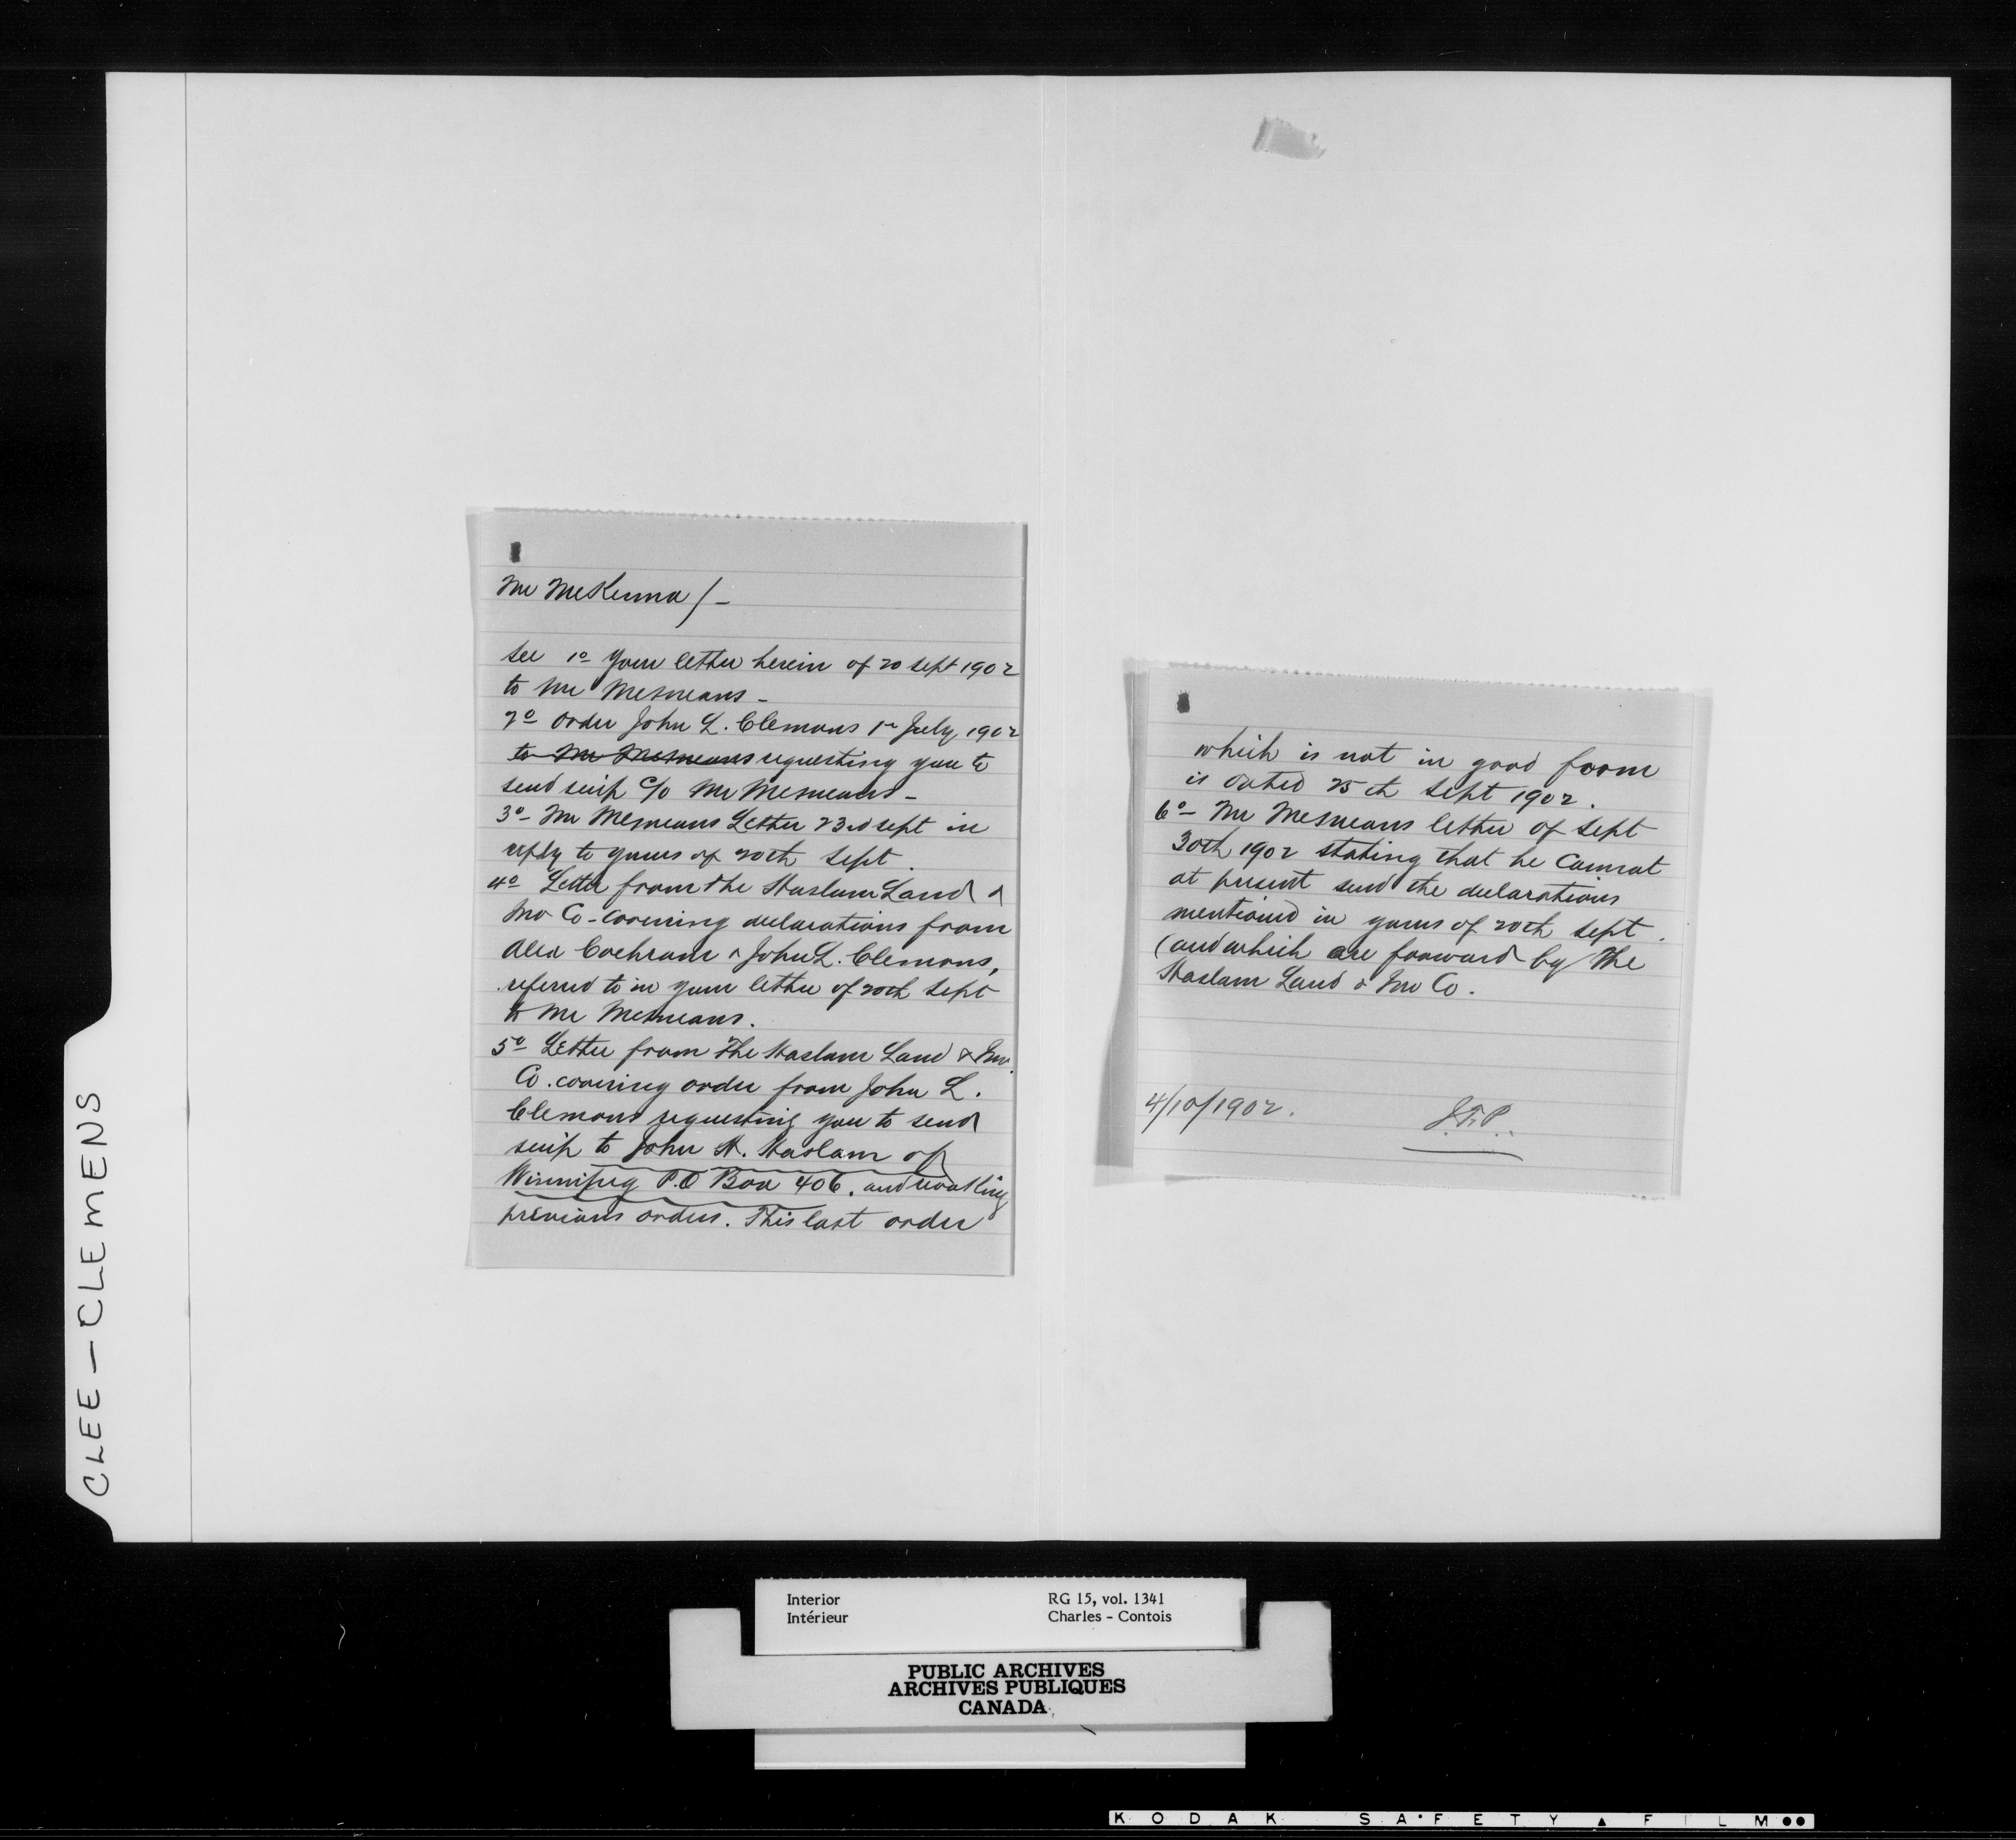 Mr McKenna /-
See 1º Your letter herein of 20 Sept 1902
to Mr McMeans -
2º Order John L. Clemons 1st July 1902
to Mr McMeans requesting you to
send scrip c/o Mr McMeans -
3º- Mr McMeans Letter 23rd sept in
reply to yours of 20th Sept.
4º Letter from the Haslam Land &
Inv Co - covering declarations from
Alex Cochrane & John L. Clemons,
referred to in your letter of 20th Sept
to Mr McMeans.
5º Letter from The Haslam Land & Inv.
Co. covering order from John L.
Clemons requesting you to send
scrip to John H. Haslam of
Winnipeg P.O Box 406. and revoking
previous orders. This last order
which is not in good form
is dated 25th Sept 1902.
6º- Mr McMeans letter of Sept
30th 1902 stating that he cannot
at present send the declarations
mentioned in yours of 20th Sept.
(and which are forward by The
Haslam Land & Inv Co.
4/10/1902.
CLEE - CLEMENS
Interior
Intérieur
RG 15, vol. 1341
Charles - Contois
PUBLIC ARCHIVES
ARCHIVES PUBLIQUES
CANADA
KODAK SAFETY FILM